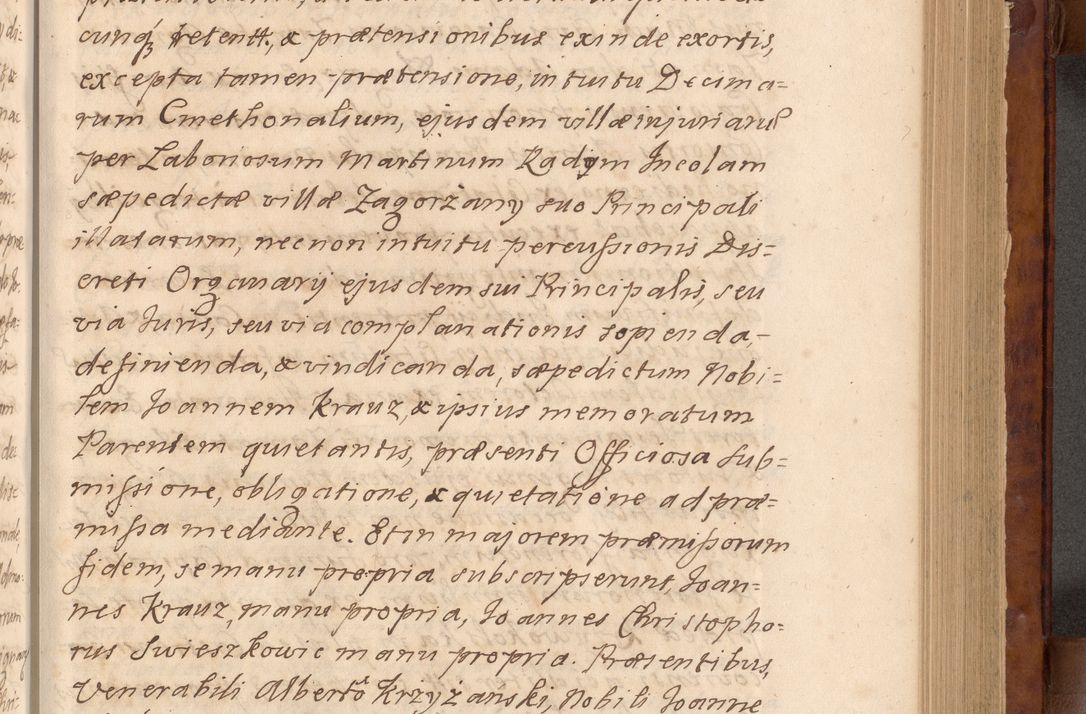 cunq₃ retentt., & prætensionibus exinde exortis,
excepta tamen prætensione, intuitu Decima=
rum Cmethonalium, ejusdem villæ injuriarū
per Laboriosum Martinum Radym Incolam
sæpedictæ villæ Zagorżany suo Principali
illatarum, necnon intuitu percussionis Dis=
creti Organarij ejusdem sui Principalis, seu
via Iuris, seu via complanationis sopienda,
definienda, & vindicanda, sæpedictum Nobi=
lem Joannem Krauz, & ipsius memoratum
Parentem quietantis, præsenti Officiosa sub=
missione, obligatione, & quietatione ad præ=
missa mediante. Et in majorem præmissorum
fidem, se manu propria subscripserunt, Joan=
nes Krauz, manu propria, Joannes Christopho=
rus Swieszkowic manu propria. Præsentibus,
Venerabili Alberto Krzyżanski, Nobili Joanne